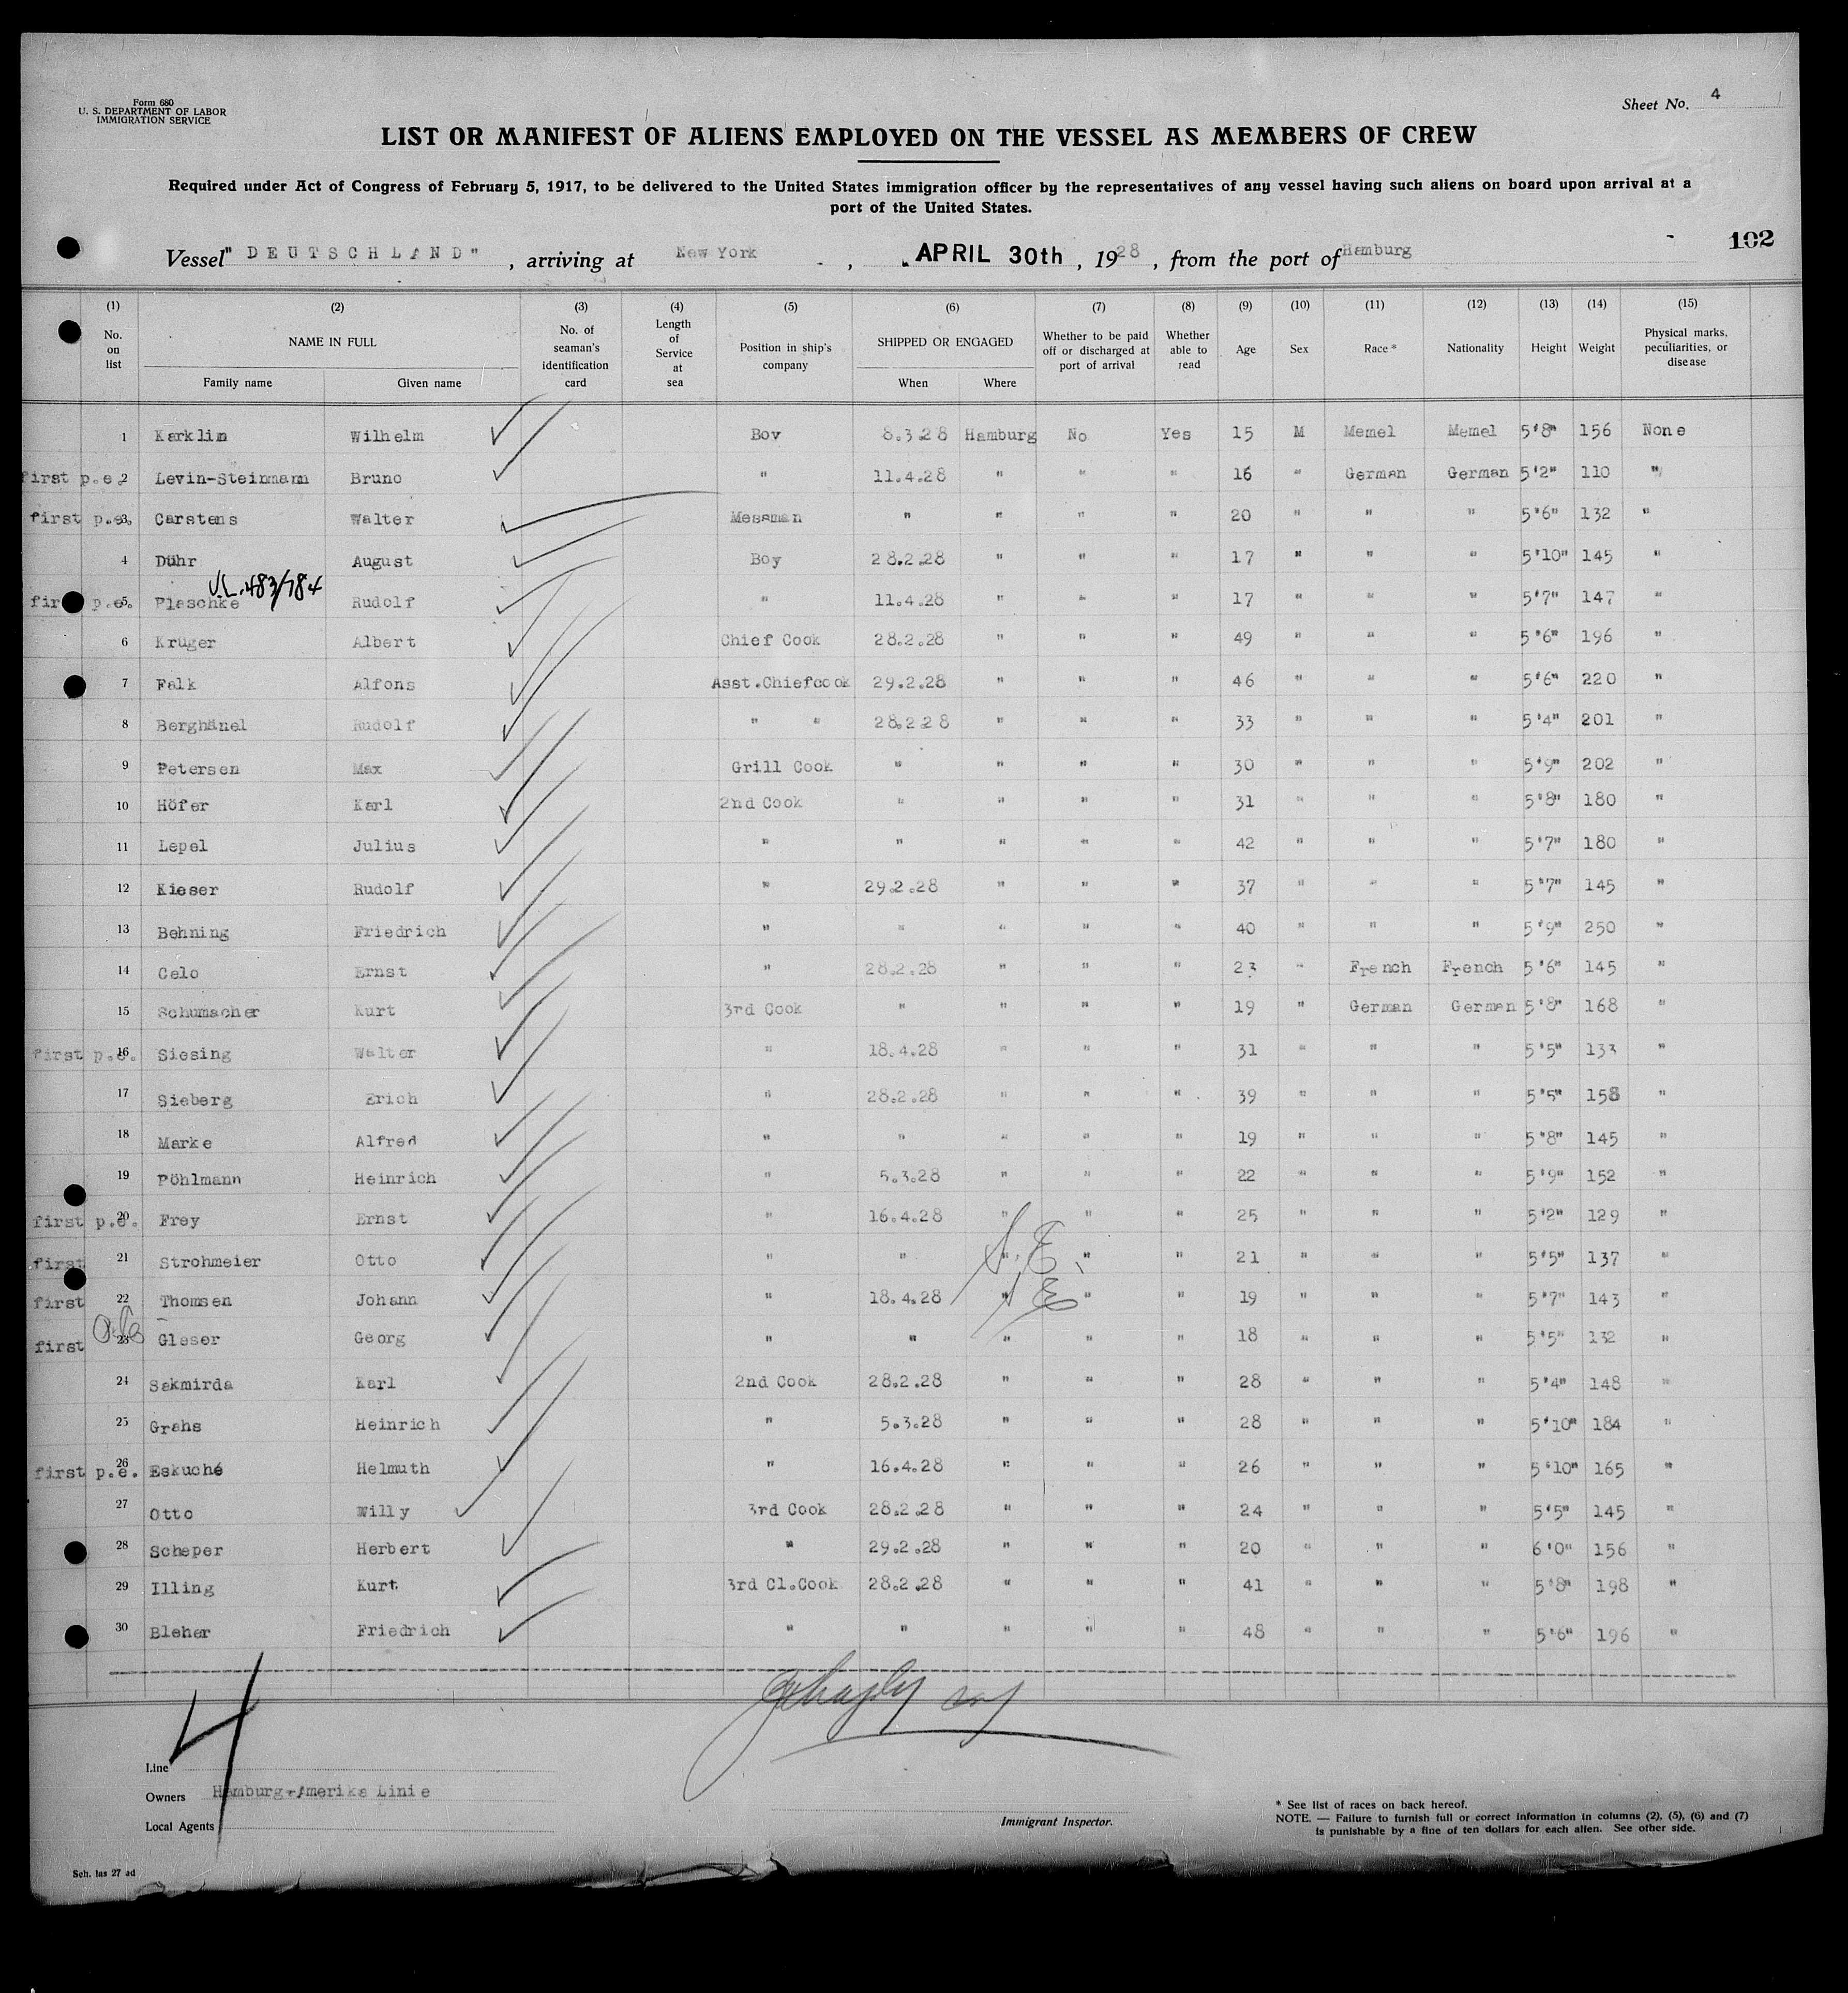 Form 680
U. S. DEPARTMENT OF LABOR
IMMIGRATION SERVICE
Sheet No. 4
LIST OR MANIFEST OF ALIENS EMPLOYED ON THE VESSEL AS MEMBERS OF CREW
Required under Act of Congress of February 5, 1917, to be delivered to the United States immigration officer by the representatives of any vessel having such aliens on board upon arrival at a
port of the United States.
102
Vessel "DEUTSCHLAND" , arriving at New York , APRIL 30th , 1928 , from the port of Hamburg
(1) (2) (3) (4) (5) (6) (7) (8) (9) (10) (11) (12) (13) (14) (15)
No. on list NAME IN FULL Family name Given name No. of seaman's identification card Length of Service at sea Position in ship's company SHIPPED OR ENGAGED When Where Whether to be paid off or discharged at port of arrival Whether able to read Age Sex Race * Nationality Height Weight Physical marks, peculiarities, or disease
1 Karklin Wilhelm Boy 8.3.28 Hamburg No Yes 15 M Memel Memel 5'8" 156 None
first p.e. 2 Levin-Steinmann Bruno " 11.4.28 " " " 16 " German German 5'2" 110 "
first p.e. 3 Carstens Walter Messman " " " " 20 " " " 5'6" 132 "
4 Dühr August Boy 28.2.28 " " " 17 " " " 5'10" 145 "
V.L. 483/784
first p.e. 5 Plaschke Rudolf " 11.4.28 " " " 17 " " " 5'7" 147 "
6 Krüger Albert Chief Cook 28.2.28 " " " 49 " " " 5'6" 196 "
7 Falk Alfons Asst.Chiefcook 29.2.28 " " " 46 " " " 5'6" 220 "
8 Berghänel Rudolf " " 28.2.28 " " " 33 " " " 5'4" 201 "
9 Petersen Max Grill Cook " " " " 30 " " " 5'9" 202 "
10 Höfer Karl 2nd Cook " " " " 31 " " " 5'8" 180 "
11 Lepel Julius " " " " " 42 " " " 5'7" 180 "
12 Kieser Rudolf " 29.2.28 " " " 37 " " " 5'7" 145 "
13 Behning Friedrich " " " " " 40 " " " 5'9" 250 "
14 Celo Ernst " 28.2.28 " " " 23 " French French 5'6" 145 "
15 Schumacher Kurt 3rd Cook " " " " 19 " German German 5'8" 168 "
first p.e. 16 Siesing Walter " 18.4.28 " " " 31 " " " 5'5" 133 "
17 Sieberg Erich " 28.2.28 " " " 39 " " " 5'5" 158 "
18 Marke Alfred " " " " " 19 " " " 5'8" 145 "
19 Pöhlmann Heinrich " 5.3.28 " " " 22 " " " 5'9" 152 "
first p.e. 20 Frey Ernst " 16.4.28 " " " 25 " " " 5'2" 129 "
first 21 Strohmeier Otto " " " " " 21 " " " 5'5" 137 "
first 22 Thomsen Johann " 18.4.28 " " " 19 " " " 5'7" 143 "
first 23 Gleser Georg " " " " " 18 " " " 5'5" 132 "
24 Sakmirda Karl 2nd Cook 28.2.28 " " " 28 " " " 5'4" 148 "
25 Grahs Heinrich " 5.3.28 " " " 28 " " " 5'10" 184 "
first p.e. 26 Eskuché Helmuth " 16.4.28 " " " 26 " " " 5'10" 165 "
27 Otto Willy 3rd Cook 28.2.28 " " " 24 " " " 5'5" 145 "
28 Scheper Herbert " 29.2.28 " " " 20 " " " 6'0" 156 "
29 Illing Kurt 3rd Cl.Cook 28.2.28 " " " 41 " " " 5'8" 198 "
30 Bleher Friedrich " " " " " 48 " " " 5'6" 196 "
4
Line
Owners Hamburg-Amerika Linie
Local Agents
Immigrant Inspector.
* See list of races on back hereof.
NOTE. — Failure to furnish full or correct information in columns (2), (5), (6) and (7)
is punishable by a fine of ten dollars for each alien. See other side.
Sch. las 27 ad